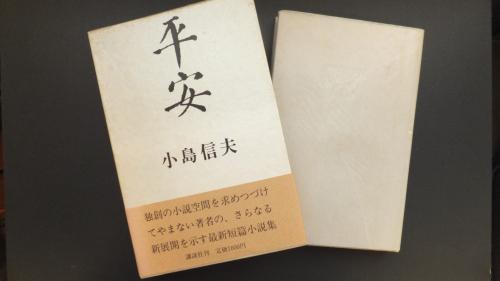 平安
小島信夫
独創の小説空間を求めつづけ
てやまない著者の、さらなる
新展開を示す最新短篇小説集
講談社刊 定価1600円